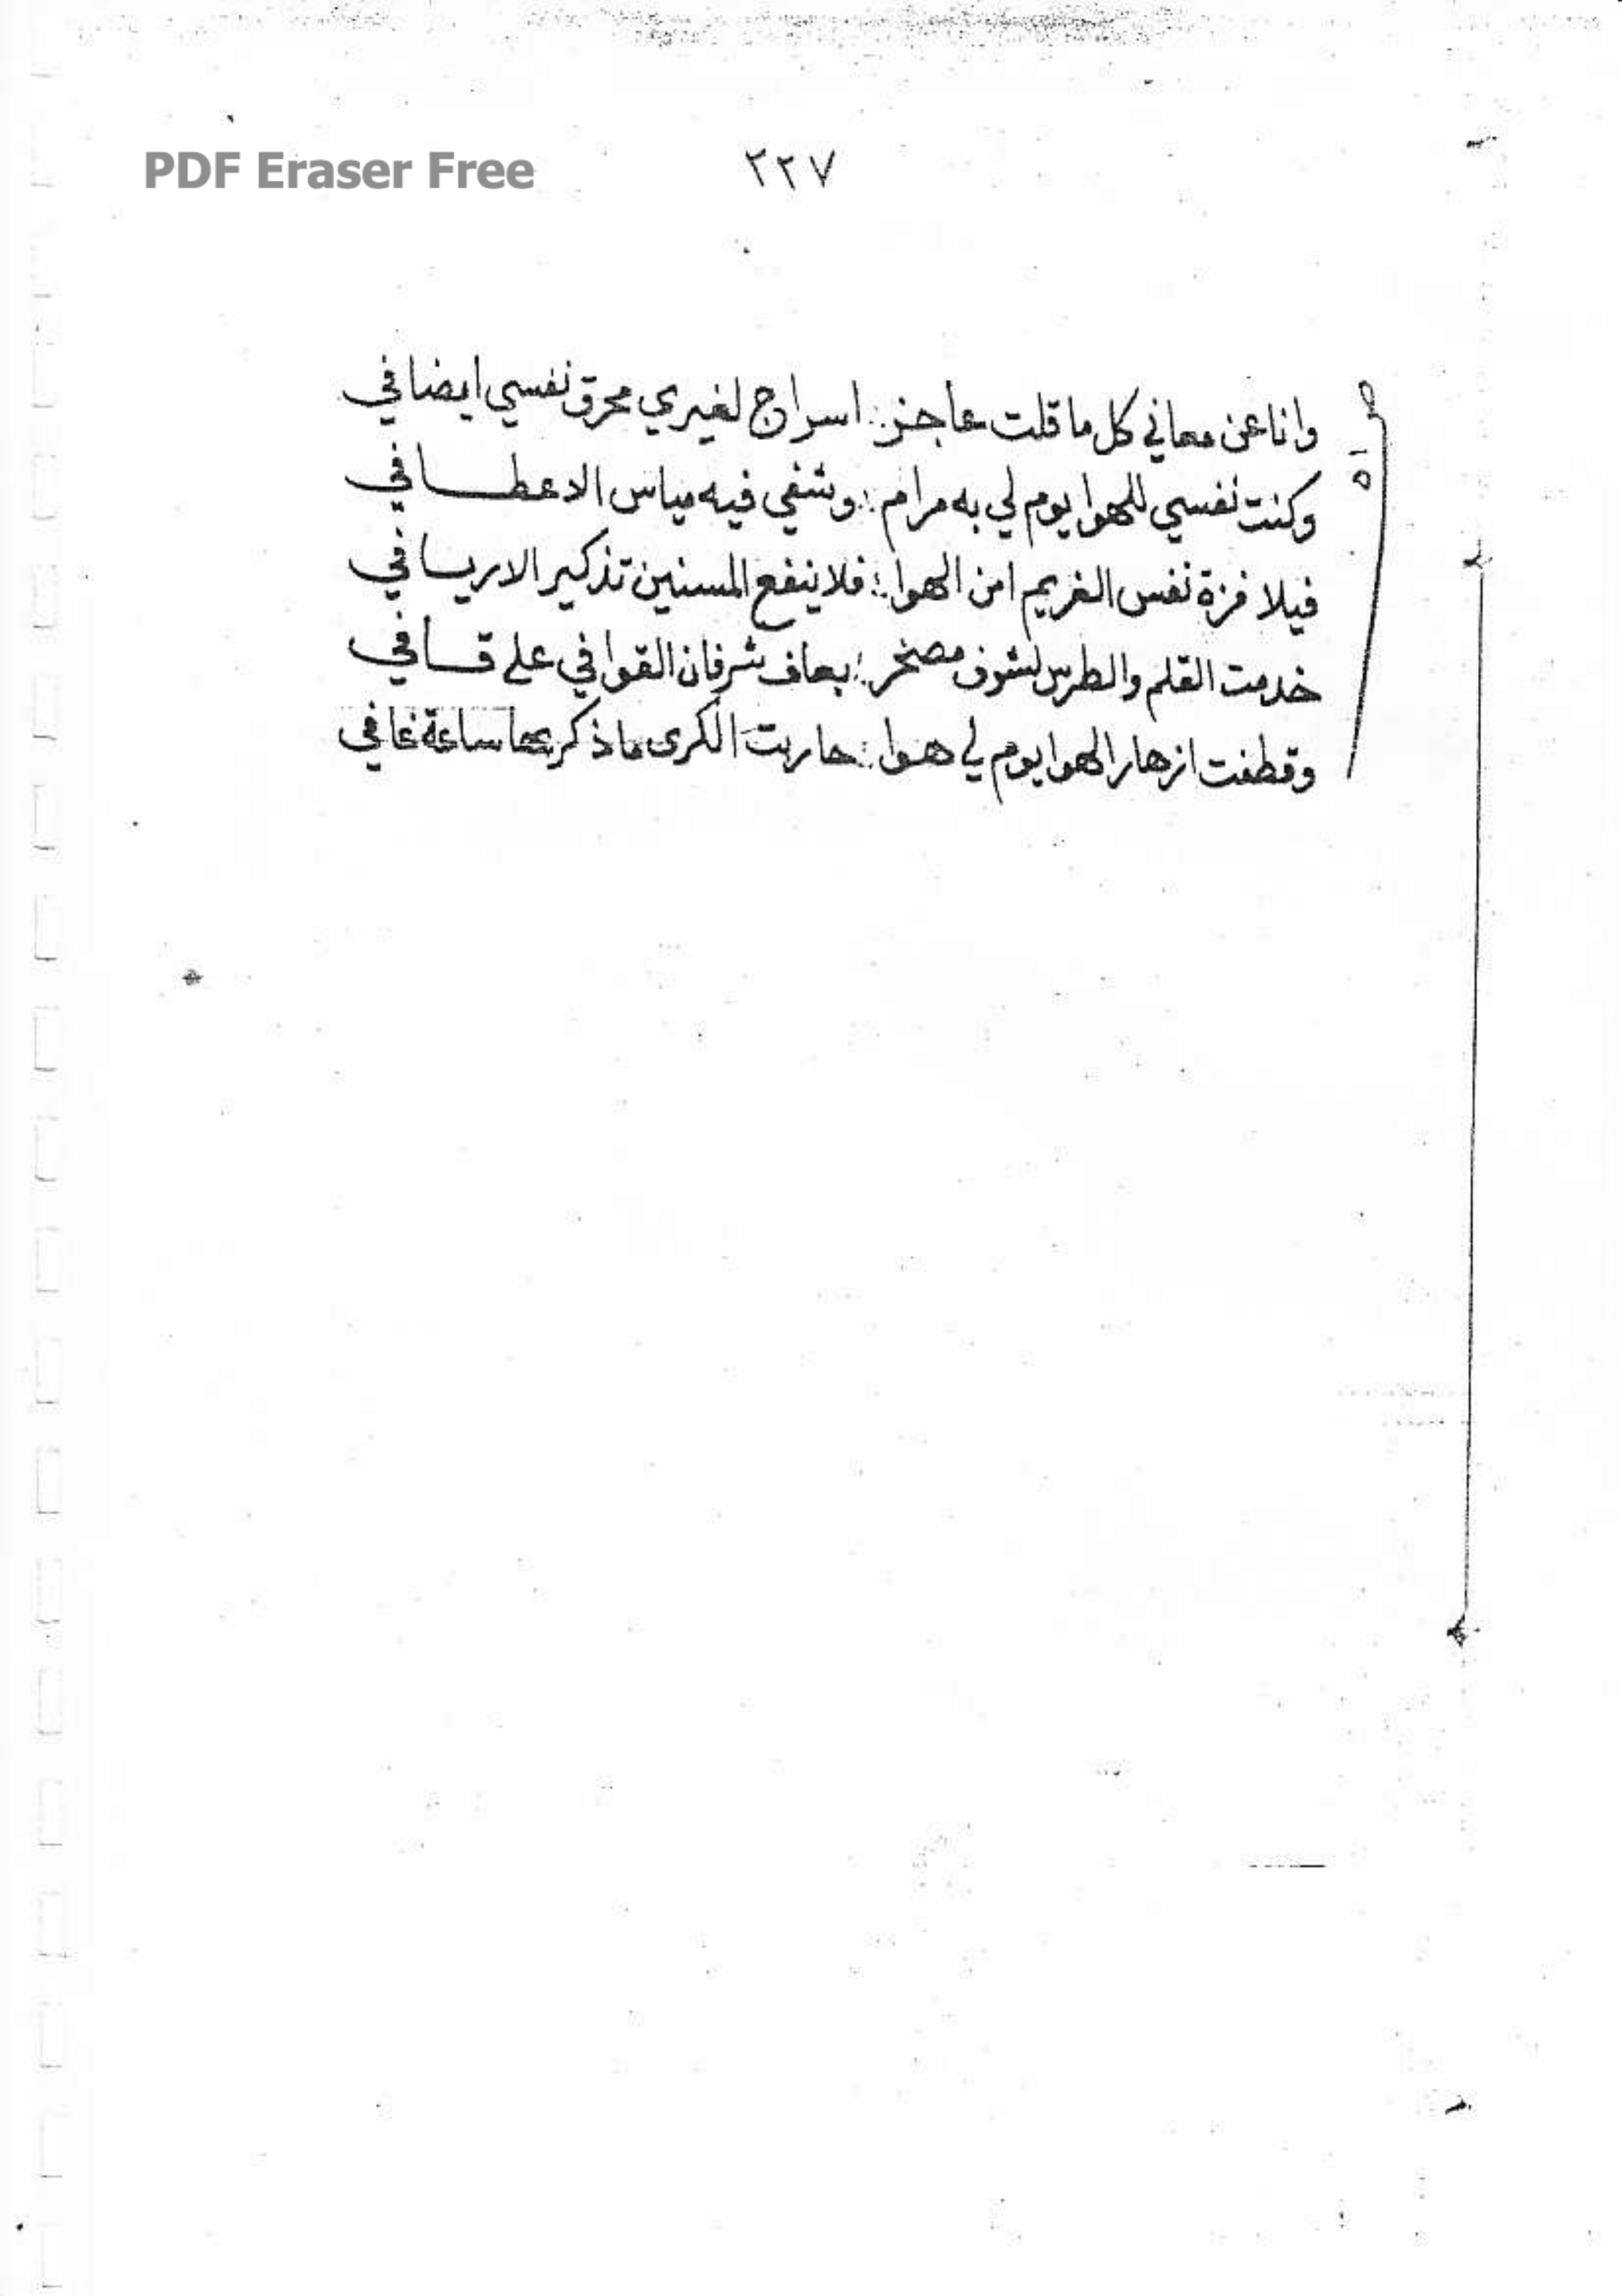 PDF Eraser Free
٢٢٧
وانا عن معاني كل ما قلت عاجز : اسراج لغيري محرق نفسي ايضا في
وكنت نفسي للهوا يوم لي به مرام : وشفي فيه مياس الاعطـــافي
فيلا فزة نفس الغريم امن الهوا : فلا ينفع المسنين تذكير الاريسافي
خدمت القلم والطرس لشوف مصخر : بعاف شرفان القوافي على قسافي
وقطفت ازهار الهوا يوم لي هوا : حاربت الكرى ما ذكر ساعة غافي